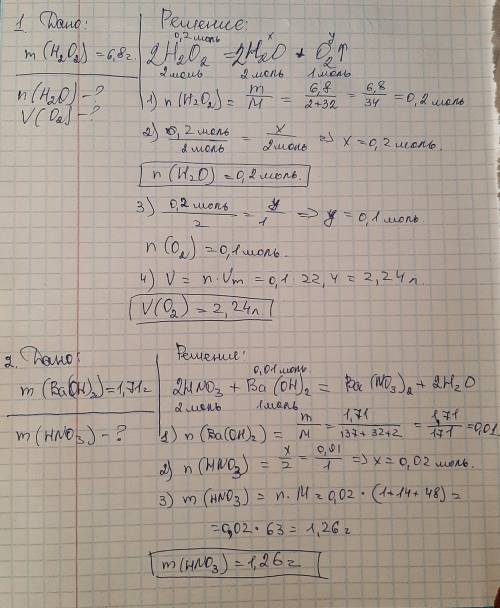 1. Дано:
m(H₂O₂) = 6,8г
n(H₂O) - ?
V(O₂) - ?
Решение:
0,2 моль x y
2H₂O₂ = 2H₂O + O₂↑
2 моль 2 моль 1 моль
1) n(H₂O₂) = m/M = 6,8/(2+32) = 6,8/34 = 0,2 моль
2) 0,2 моль/2 моль = x/2 моль ⇒ x = 0,2 моль.
n(H₂O) = 0,2 моль.
3) 0,2 моль/2 = y/1 ⇒ y = 0,1 моль.
n(O₂) = 0,1 моль.
4) V = n·Vm = 0,1 22,4 = 2,24 л.
V(O₂) = 2,24 л.
2. Дано:
m(Ba(OH)₂) = 1,71г
m(HNO₃) - ?
Решение:
0,01 моль
2HNO₃ + Ba(OH)₂ = Ba(NO₃)₂ + 2H₂O
2 моль 1 моль
1) n(Ba(OH)₂) = m/M = 1,71/(137+32+2) = 1,71/171 = 0,01
2) n(HNO₃) = x/2 = 0,01/1 ⇒ x = 0,02 моль.
3) m(HNO₃) = n·M = 0,02·(1+14+48) =
= 0,02·63 = 1,26 г
m(HNO₃) = 1,26 г.